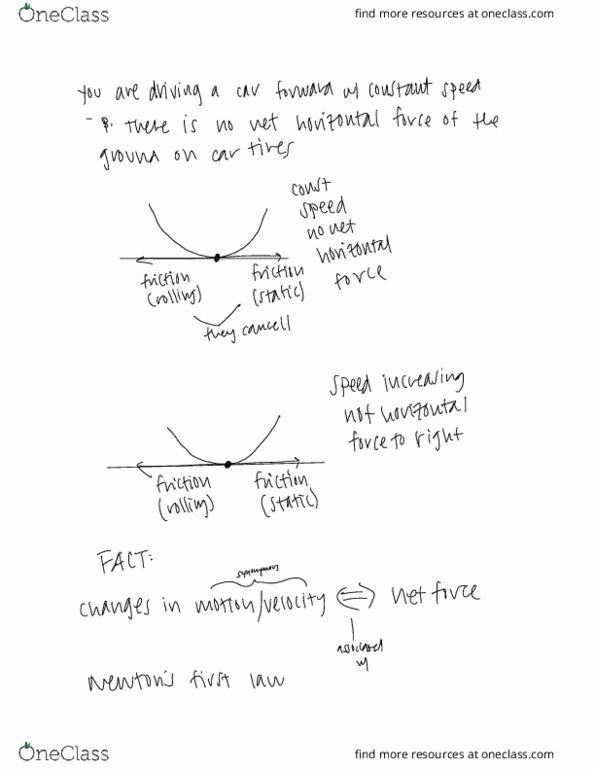 OneClass
find more resources at oneclass.com
You are driving a car forward w/ constant speed
- P. There is no net horizontal force of the
ground on car tires
const
speed
no net
horizontal
force
friction
(rolling)
friction
(static)
they cancell
speed increasing
not horizontal
force to right
friction
(rolling)
friction
(static)
FACT:
synonymous
changes in motion/velocity ⇔ net force
associated
w/
Newton's first law
OneClass
find more resources at oneclass.com